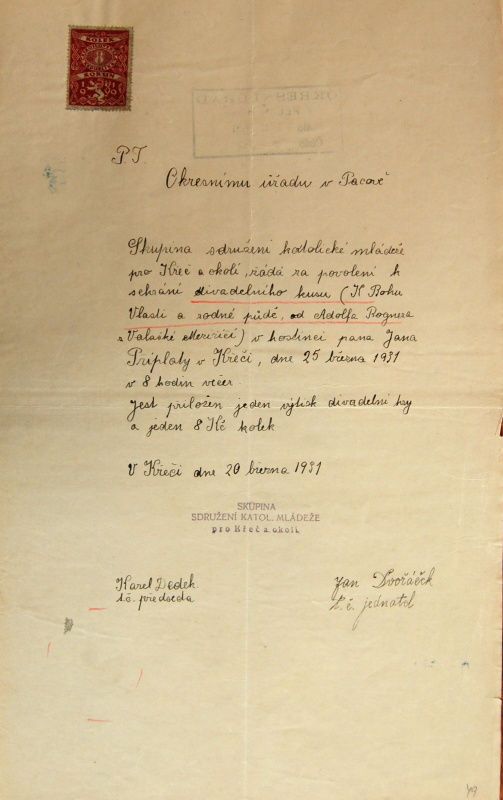 KOLEK
8
KORUN
P.T.
Okresnímu úřadu v Pacově
Skupina sdružení katolické mládeže
pro Křeč a okolí, žádá za povolení k
sehrání divadelního kusu (K Bohu
Vlasti a rodné půdě, od Adolfa Rognera
z Valašské Meziříčí) v hostinci pana Jana
Připlaty v Křeči, dne 25 března 1931
v 8 hodin večer
Jest přiložen jeden výtisk divadelní hry
a jeden 8 Kč kolek
V Křeči dne 20 března 1931
SKUPINA
SDRUŽENÍ KATOL. MLÁDEŽE
pro Křeč a okolí.
Karel Dedek.
t.č. předseda
Jan Dvořáček
t.č. jednatel
49